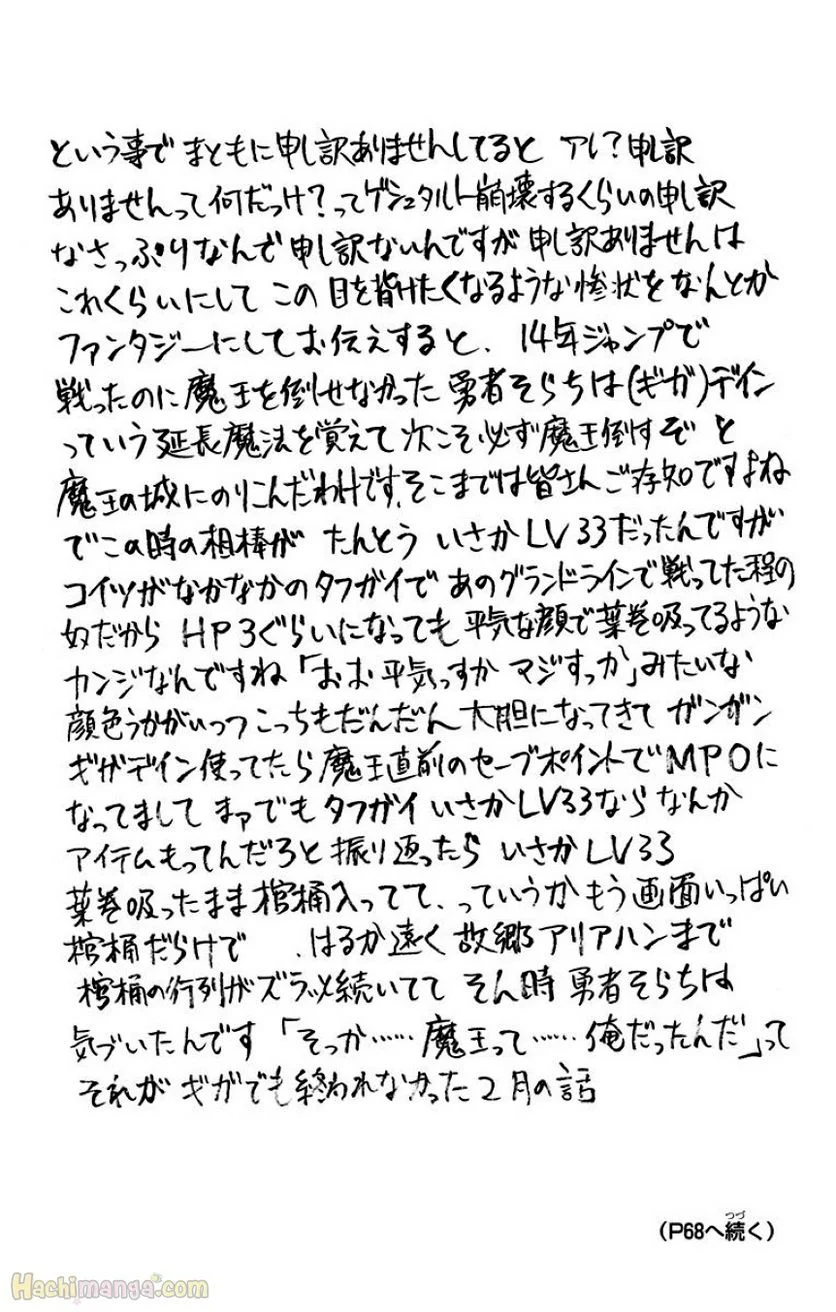 という事で まともに申し訳ありませんしてると アレ?申し訳
ありませんって何だっけ?ってゲシュタルト崩壊するくらいの申し訳
なさっぷりなんで申し訳ないんですが申し訳ありませんは
これくらいにして この目を背けたくなるような惨状をなんとか
ファンタジーにしてお伝えすると、14年ジャンプで
戦ったのに魔王を倒せなかった勇者そらちは(ギガ)デイン
っていう延長魔法を覚えて次こそ必ず魔王倒すぞ と
魔王の城にのりこんだわけです、そこまでは皆さんご存知ですよね
でこの時の相棒が たんとう いさかLV33だったんですが
コイツがなかなかのタフガイで あのグランドラインで戦ってた程の
奴だから HP3ぐらいになっても平気な顔で葉巻吸ってるような
カンジなんですね「おお平気っすか マジすっか」みたいな
顔色うかがいつつこっちもだんだん大胆になってきて ガンガン
ギガデイン使ってたら魔王直前のセーブポイントでMP0に
なってまして まァでもタフガイいさかLV33なら なんか
アイテムもってんだろと振り返ったら いさかLV33
葉巻吸ったまま棺桶入ってて、っていうかもう画面いっぱい
棺桶だらけで 、はるか遠く故郷アリアハンまで
棺桶の行列がズラッと続いてて そん時勇者そらちは
気づいたんです「そっか……魔王って……俺だったんだ」って
それが ギガでも終われなかった2月の話
(P68へ続く)
つづ
Hachimanga.com